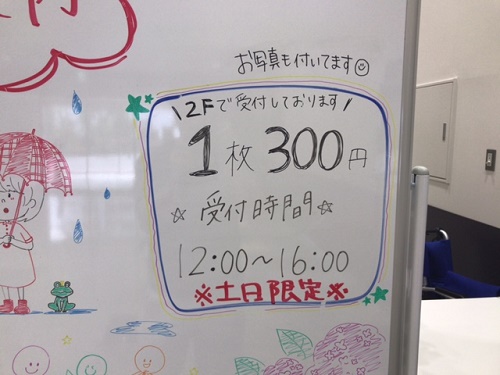 お写真も付いてます☺
\2Fで受付しております/
1枚300円
☆受付時間☆
12:00～16:00
※土日限定※